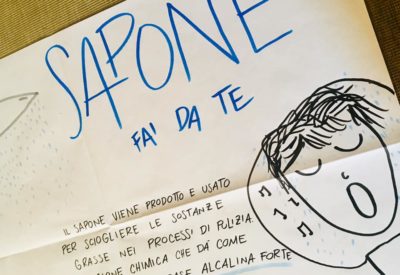 SAPONE
FA' DA TE
IL SAPONE VIENE PRODOTTO E USATO
PER SCIOGLIERE LE SOSTANZE
GRASSE NEI PROCESSI DI PULIZIA.
CHIMICA CHE DÁ COME
ALCALINA FORTE